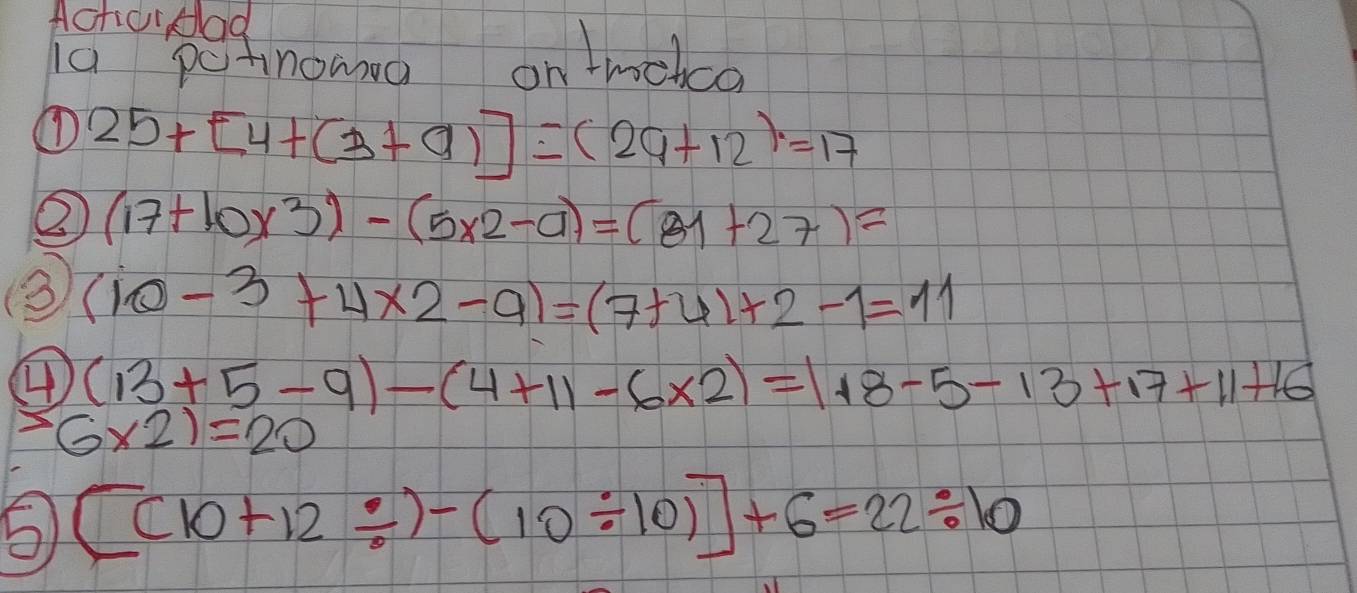 Actividad
la polinomia aritmetica
① 25+[4+(3+9)]=(29+12)=17
② (17+10×3)-(5×2-9)=(81+27)=
③ (10-3+4×2-9)=(7+4)+2-1=11
④ (13+5-9)-(4+11-6×2)=(18-5-13+17+11+16
-6×2)=20
⑤ [(10+12÷)-(10÷10)]+6=22÷10